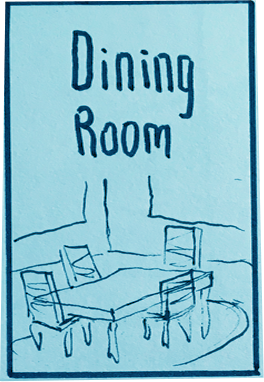 Dining
Room